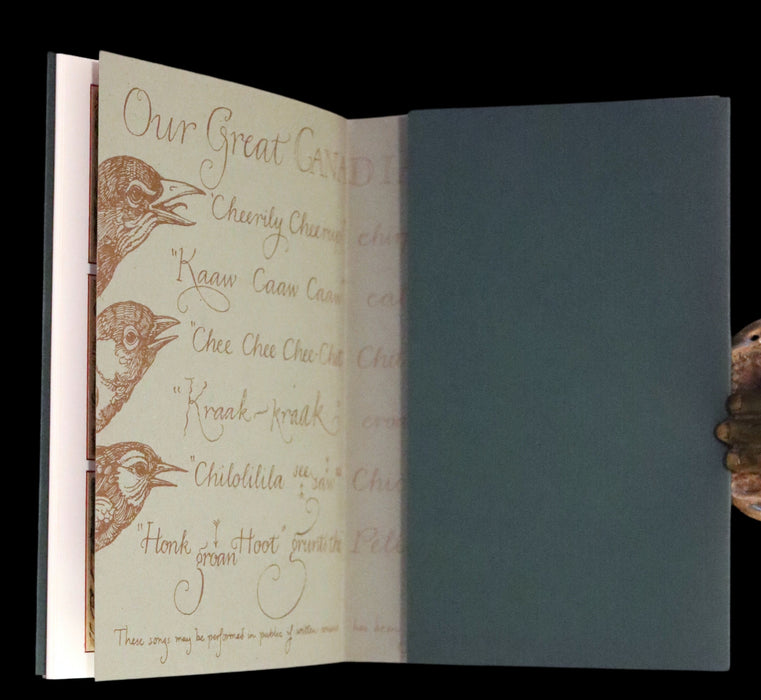 Our Great CANAD
"Cheerily Cheerup" chirp
"Kaaw Caaw Caaw" ca
"Chee Chee Chee-Ch
"Kraak-kraak" croa
"Chilolilila see saw"
"Honk groan Hoot" grunts the Peli
These songs may be performed in public if written